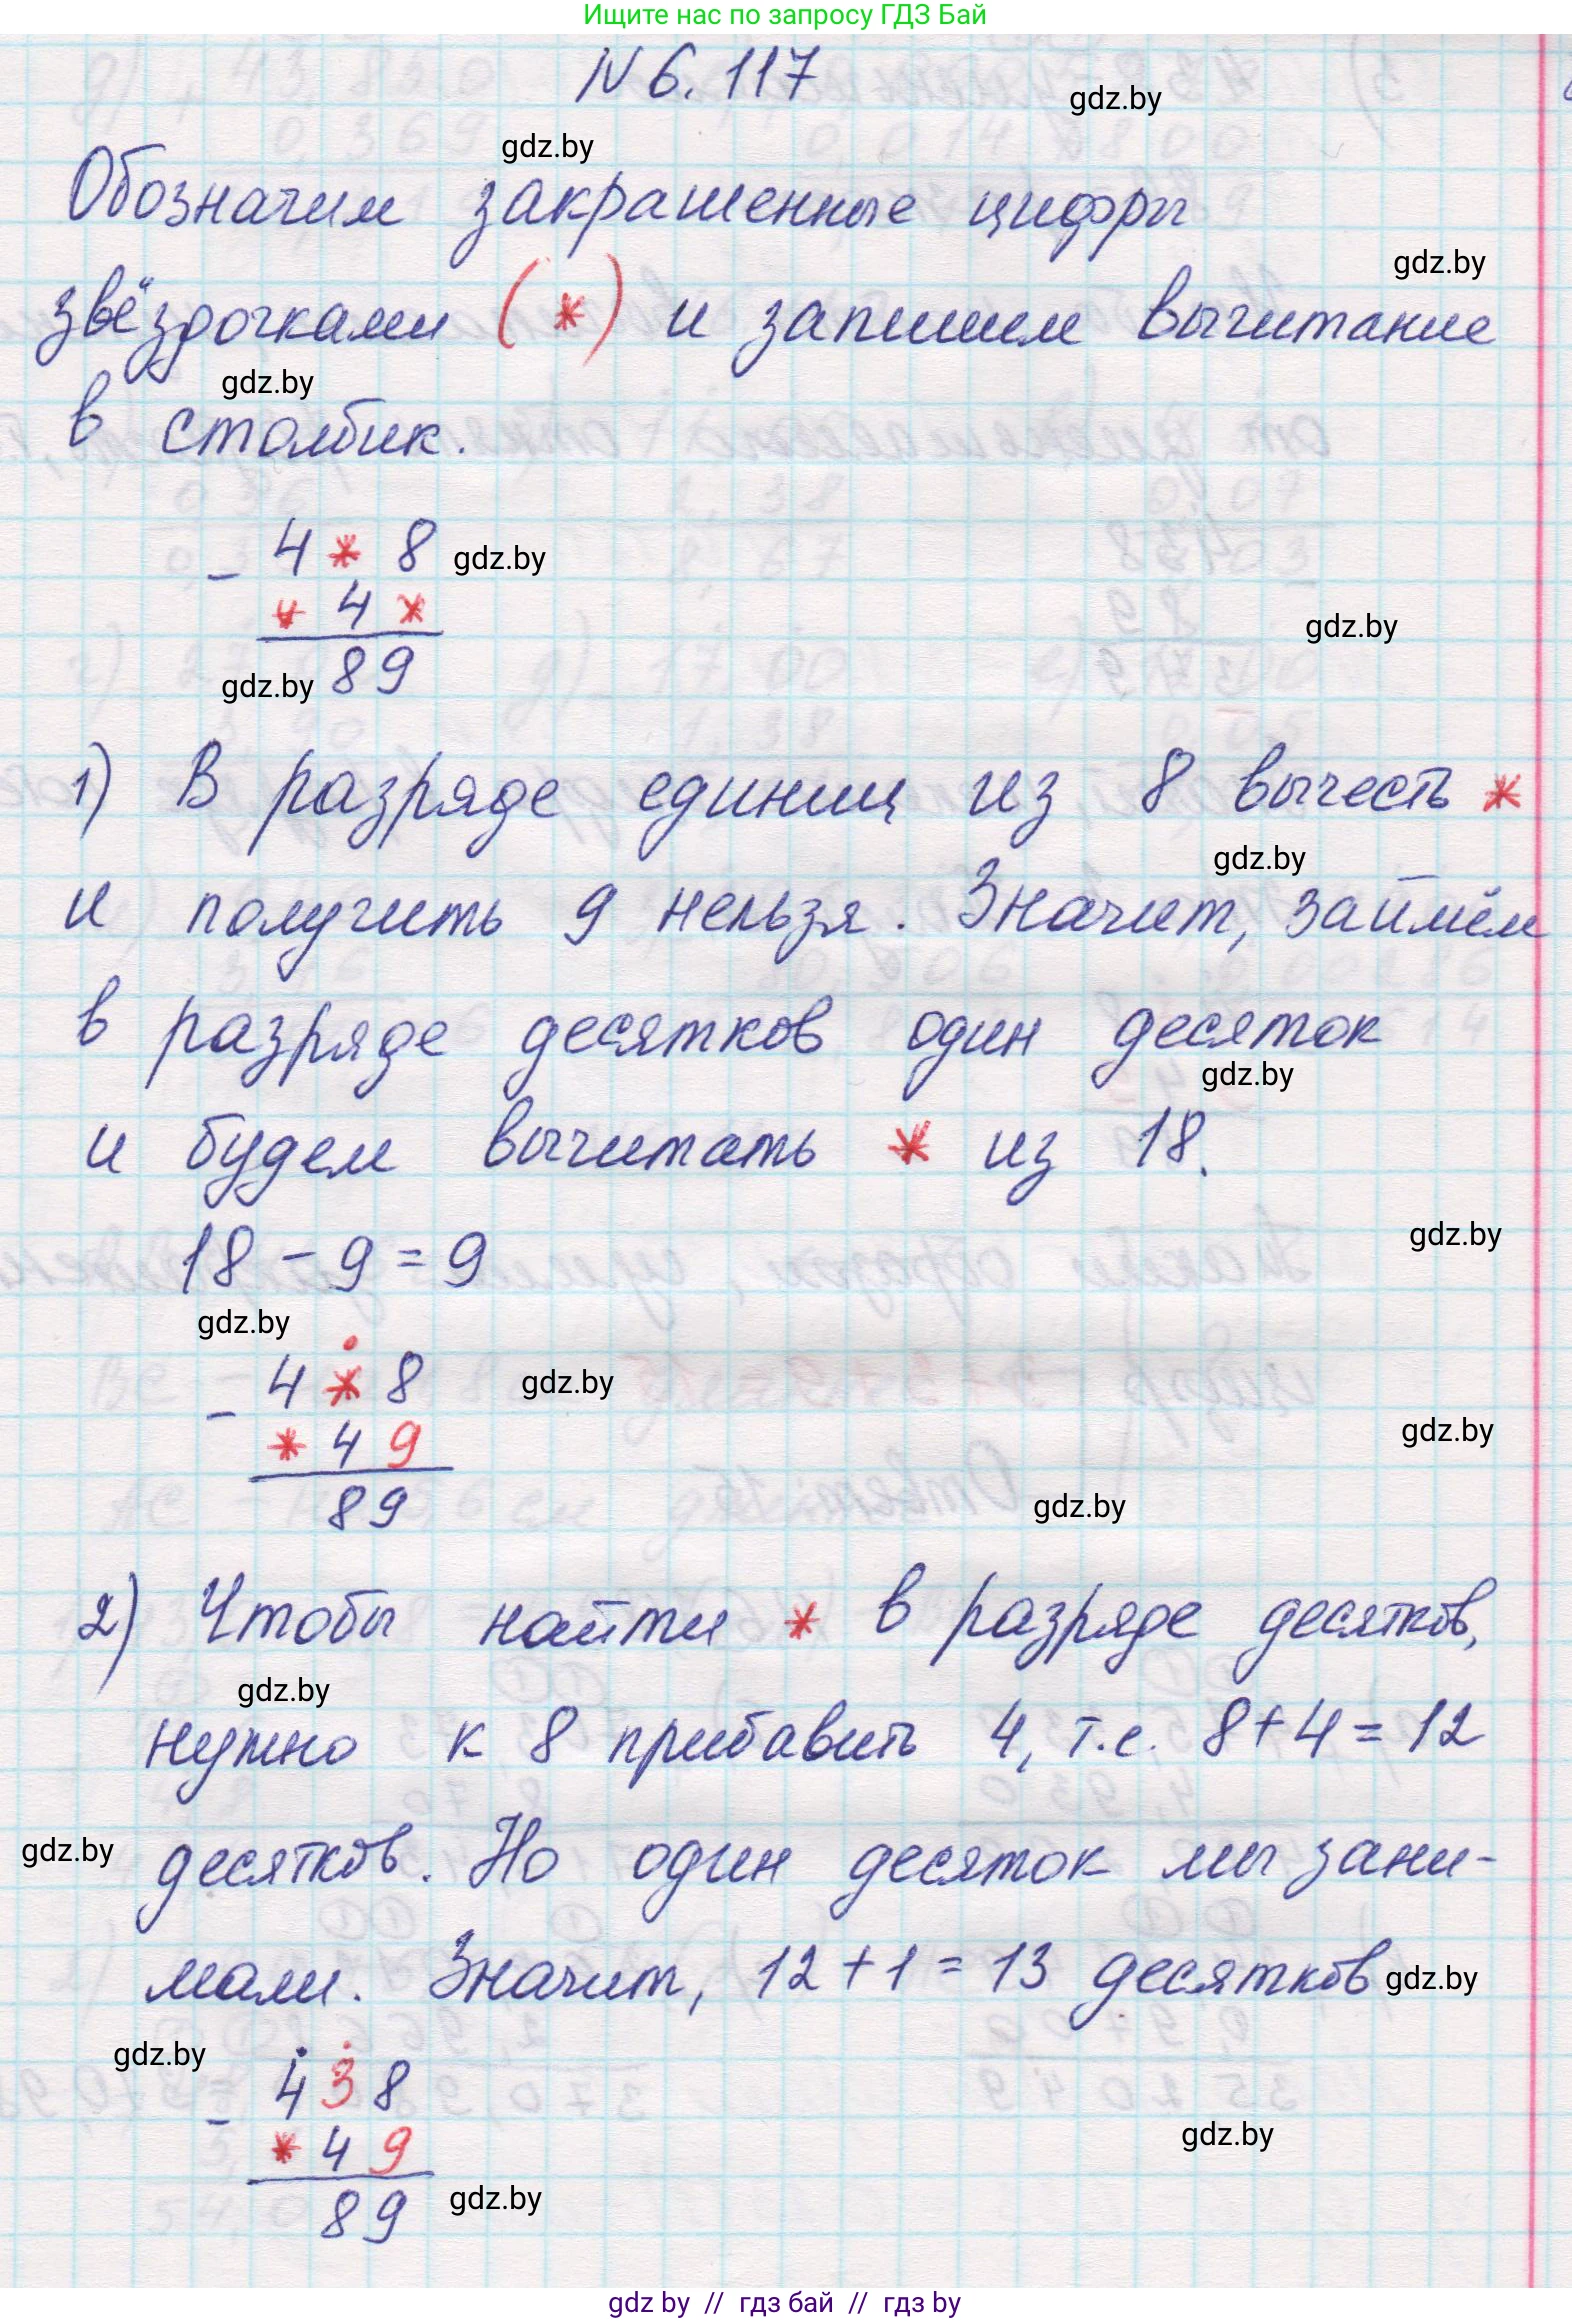 Ищите нас по запросу ГДЗ Бай
N 6. 117
gdz.by
gdz.by
Обозначим закрашенные цифры
gdz.by
звёздочками (*) и запишем вычитание
gdz.by
в столбик.
- 4 * 8 gdz.by
* 4 *
gdz.by
gdz.by 89
1) В разряде единиц из 8 вычесть *
gdz.by
и получить 9 нельзя. Значит, займём
в разряде десятков один десяток
gdz.by
и будем вычитать * из 18.
gdz.by
18 - 9 = 9
gdz.by
- 4 * 8 gdz.by
* 4 9 gdz.by
89 gdz.by
2) Чтобы найти * в разряде десятков,
gdz.by
нужно к 8 прибавить 4, т.е. 8+4=12
gdz.by десятков. Но один десяток мы зани-
мали. Значит, 12+1=13 десятков gdz.by
gdz.by
- 4 3 8
* 4 9 gdz.by
89 gdz.by
gdz by // гдз бай // гдз by